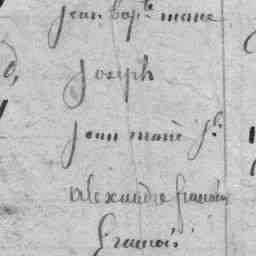 jean bapte marie
joseph
jean marie jh.
alexandre francois
francois